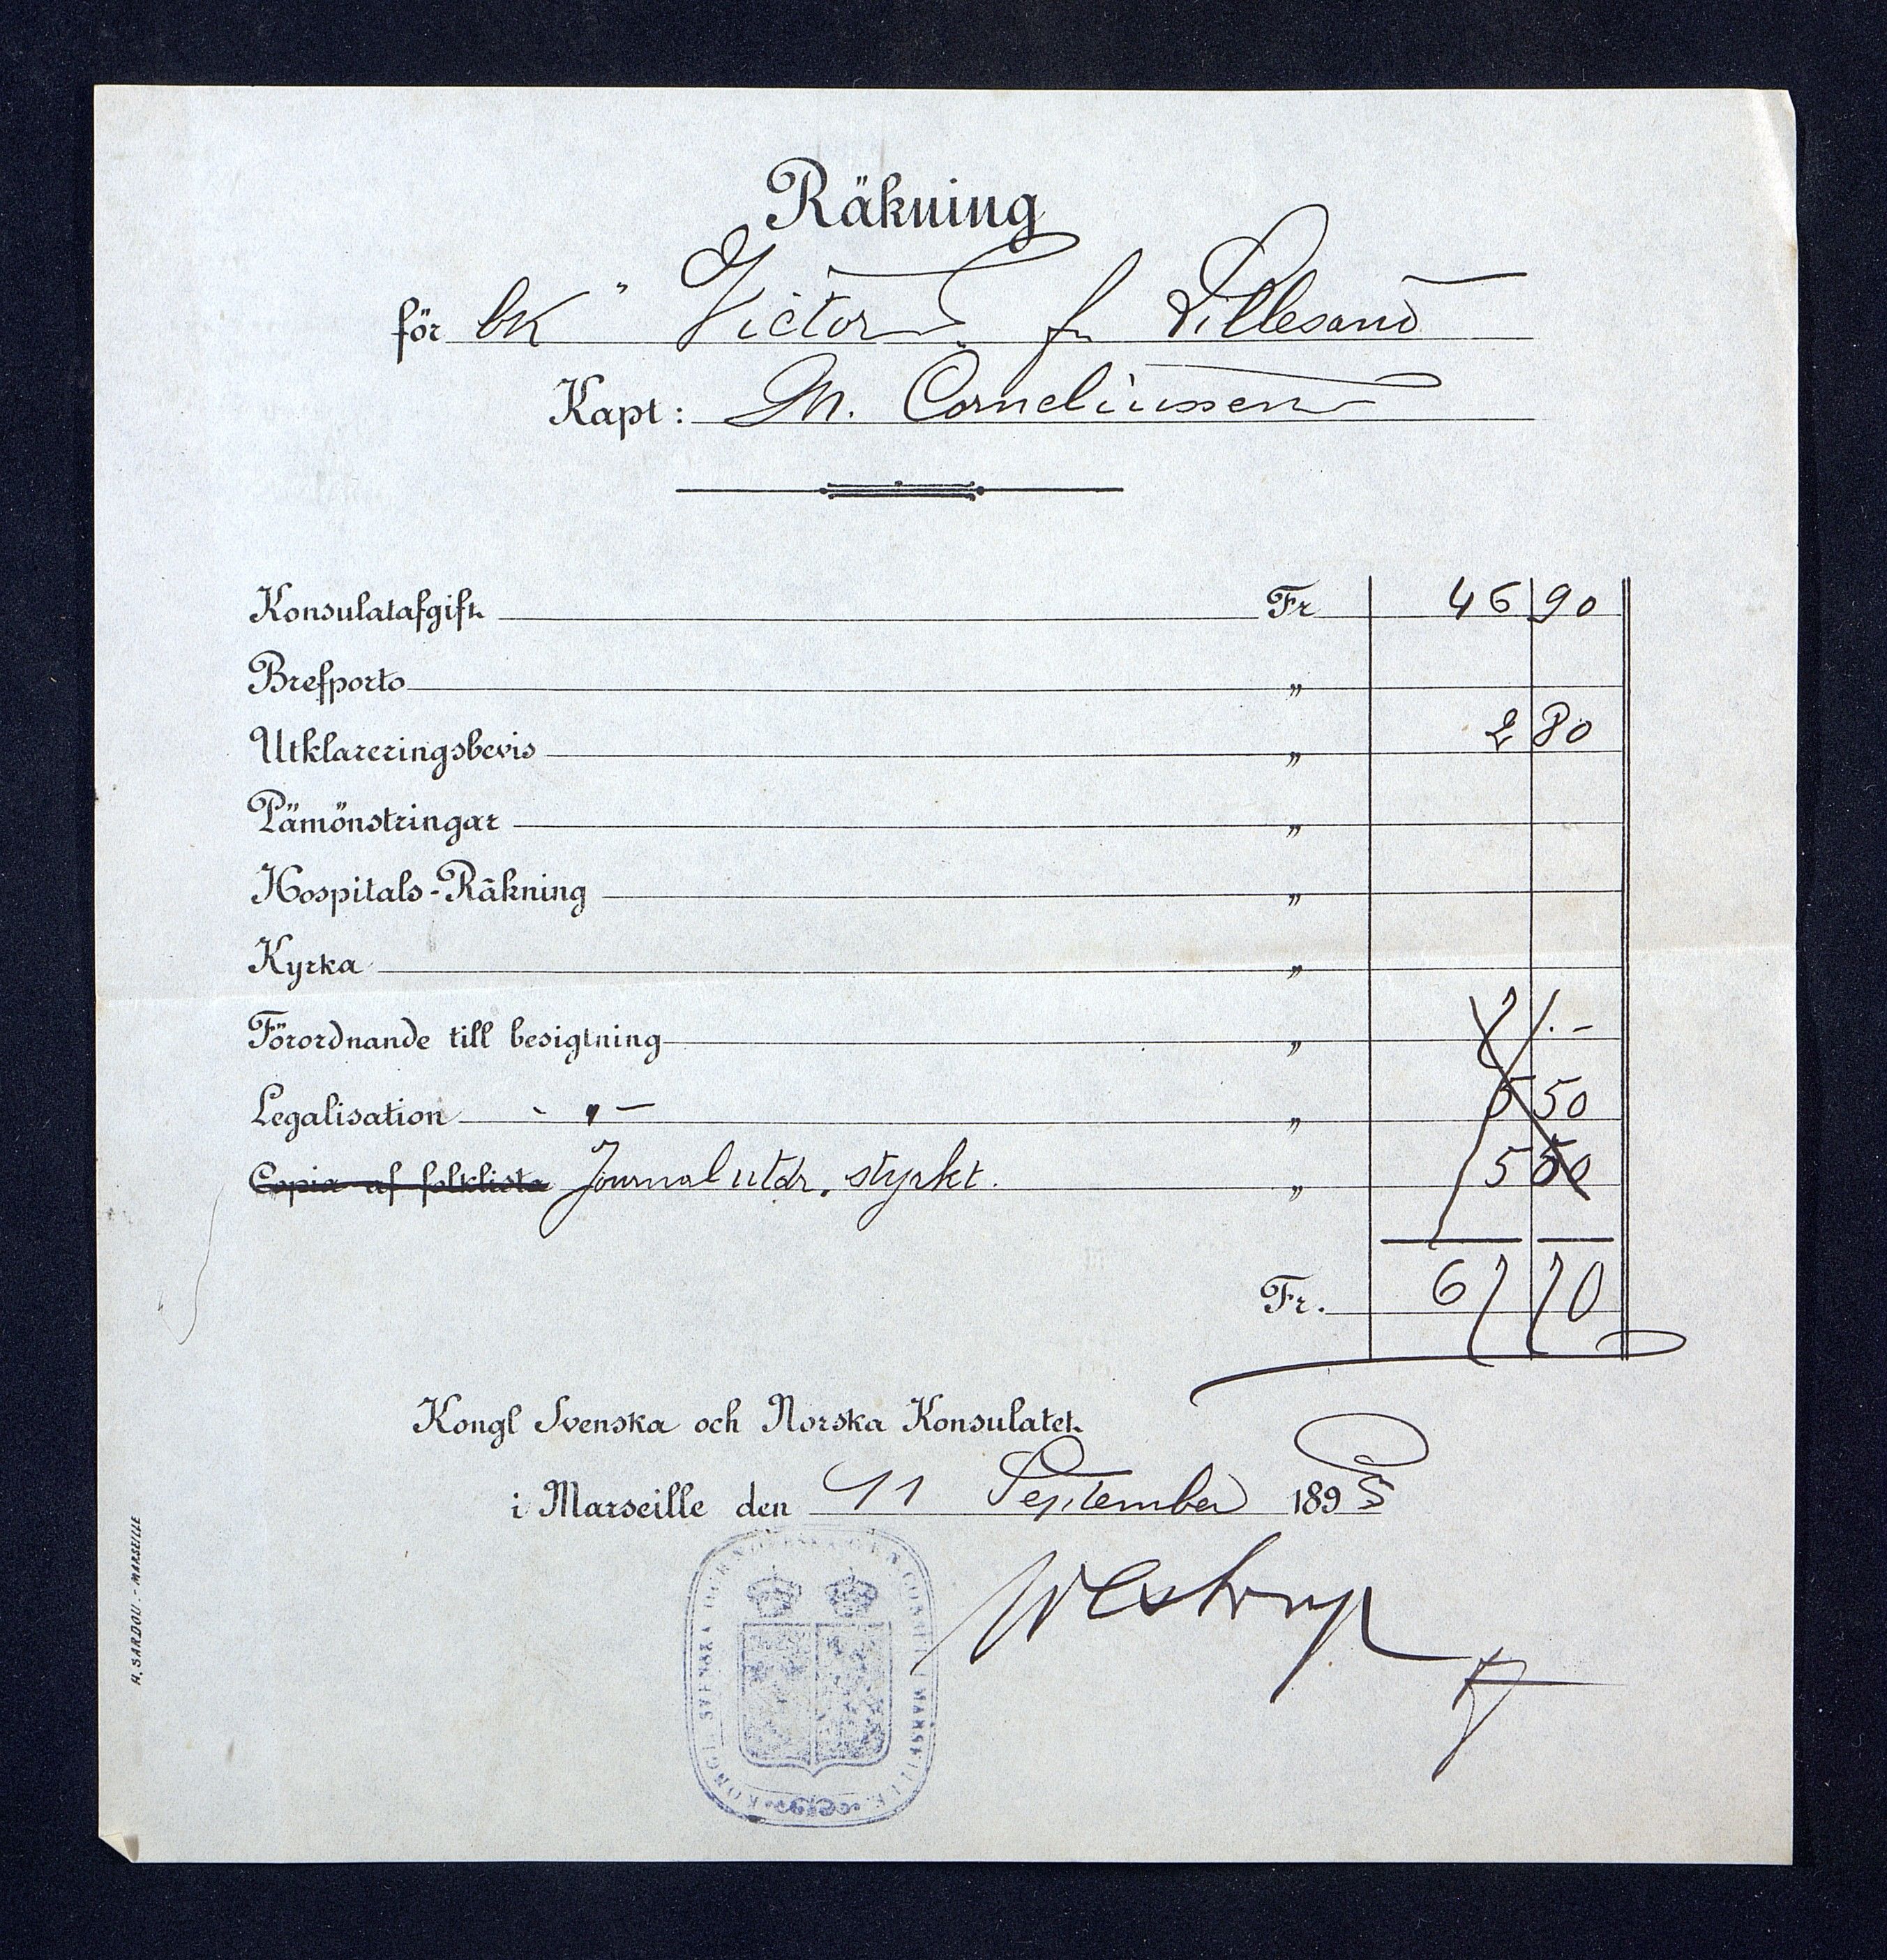 Räkning
för bk "Victor" fr Lillesand
Kapt: M. Corneliussen
Konsulatafgift Fr 46 90
Brefporto "
Utklareringsbevis " 2 80
Pämönstringar "
Hospitals-Räkning "
Kyrka "
Förordnande till besigtning " 7 . -
Legalisation - " - " 5 50
Copia af folklista Journalutdr. styrkt. " 5 50
Fr. 67 70
Kongl Svenska och Norska Konsulatet
i Marseille den 11 September 1895
Westrup
KONGL. SVENSKA OCH NORSKA MARSEILLE
H. SARDOU. - MARSEILLE